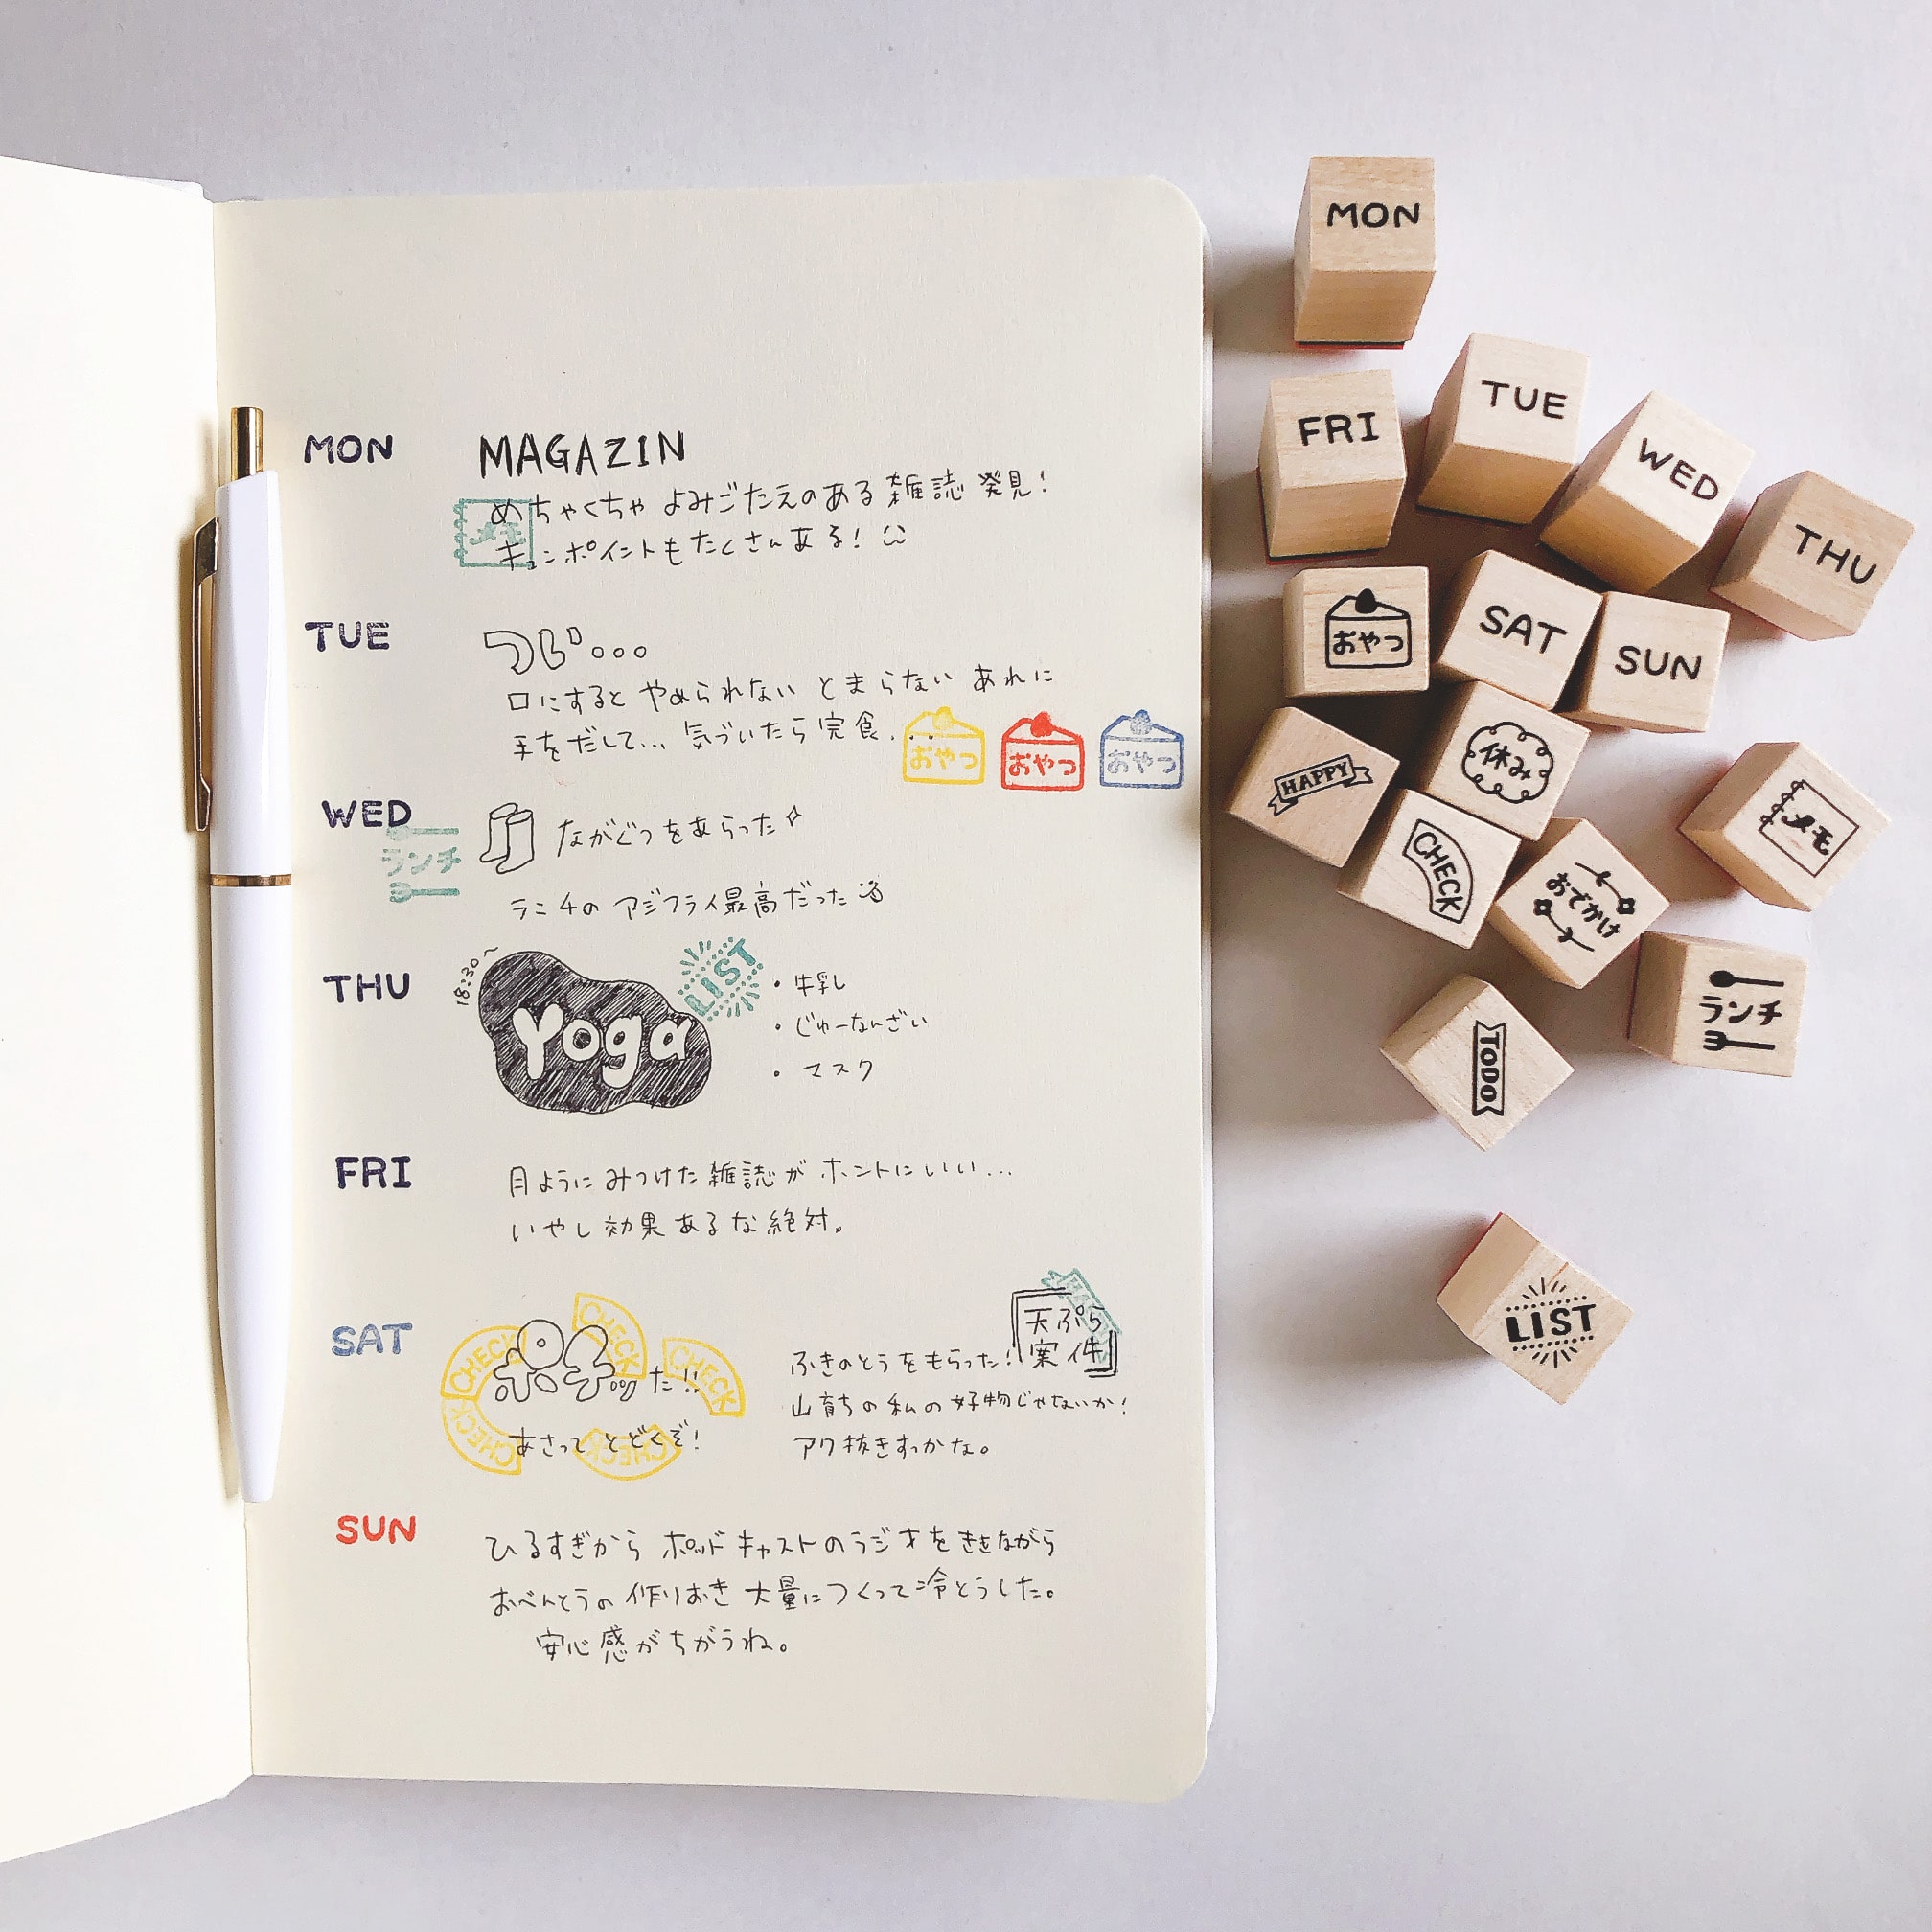 MON
MAGAZIN
めちゃくちゃ よみごたえのある 雑誌 発見!
メモ
キュンポイントもたくさんある!
TUE
つい...
口にすると やめられない とまらない あれに
手をだして... 気づいたら完食...
おやつ
おやつ
おやつ
WED
ランチ
ながぐつをあらった
ランチの アジフライ最高だった
THU
18:30~
Yoga
LIST
・牛乳
・じゅーなんざい
・マスク
FRI
月ようにみつけた雑誌が ホントにいい...
いやし効果あるな絶対。
SAT
CHECK
CHECK
CHECK
CHECK
CHECK
ポチッた!!
あさって とどくぞ!
HAPPY
天ぷら
案件
ふきのとうをもらった!
山育ちの私の好物じゃないか!
アク抜きすっかな。
SUN
ひるすぎから ポッドキャストのラジオをききながら
おべんとうの作りおき 大量につくって冷とうした。
安心感がちがうね。
MON
TUE
FRI
WED
THU
おやつ
SAT
SUN
HAPPY
休み
メモ
CHECK
おでかけ
ランチ
TODO
LIST